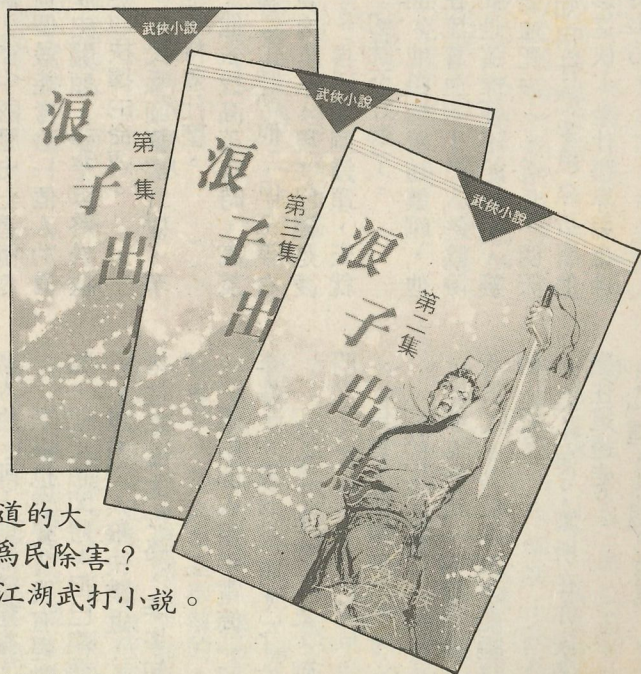 武俠小說
浪子出
第一集
武俠小說
浪子出
第三集
武俠小說
浪子出馬
第二集
道的大
為民除害？
江湖武打小說。